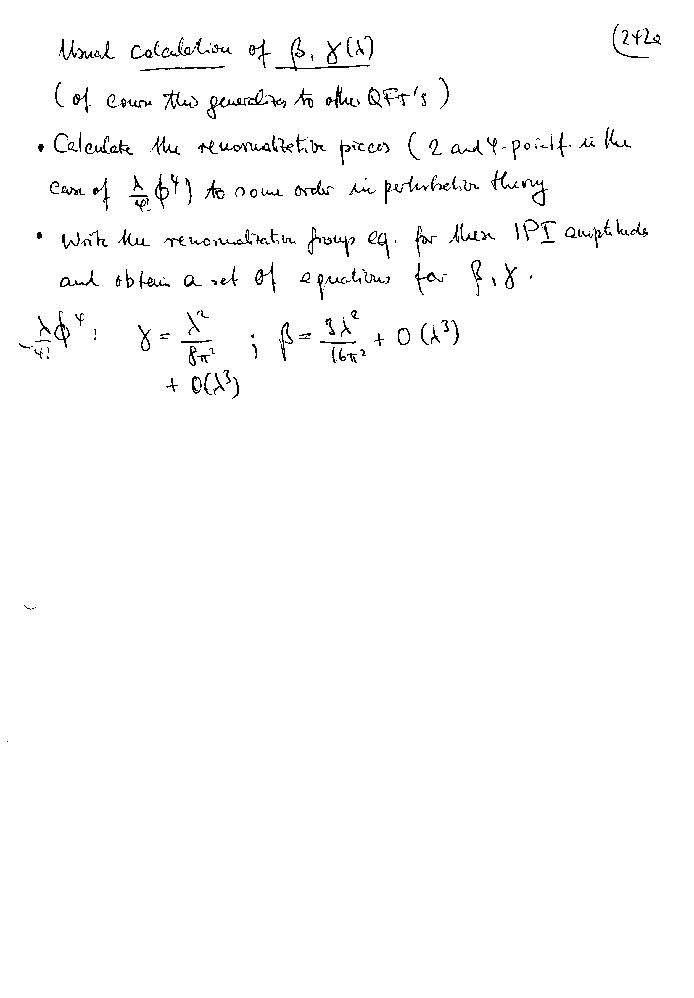 Usual calculation of β, γ(λ) (242a
(of course this generalizes to other QFT's)
• Calculate the renormalization pieces (2 and 4-point f. in the
case of λ/4! ϕ⁴) to some order in perturbation theory
• Write the renormalization group eq. for these 1PI amplitudes
and obtain a set of equations for β, γ.
-λ/4! ϕ⁴: γ = λ²/8π² ; β = 3λ²/16π² + O(λ³)
+ O(λ³)